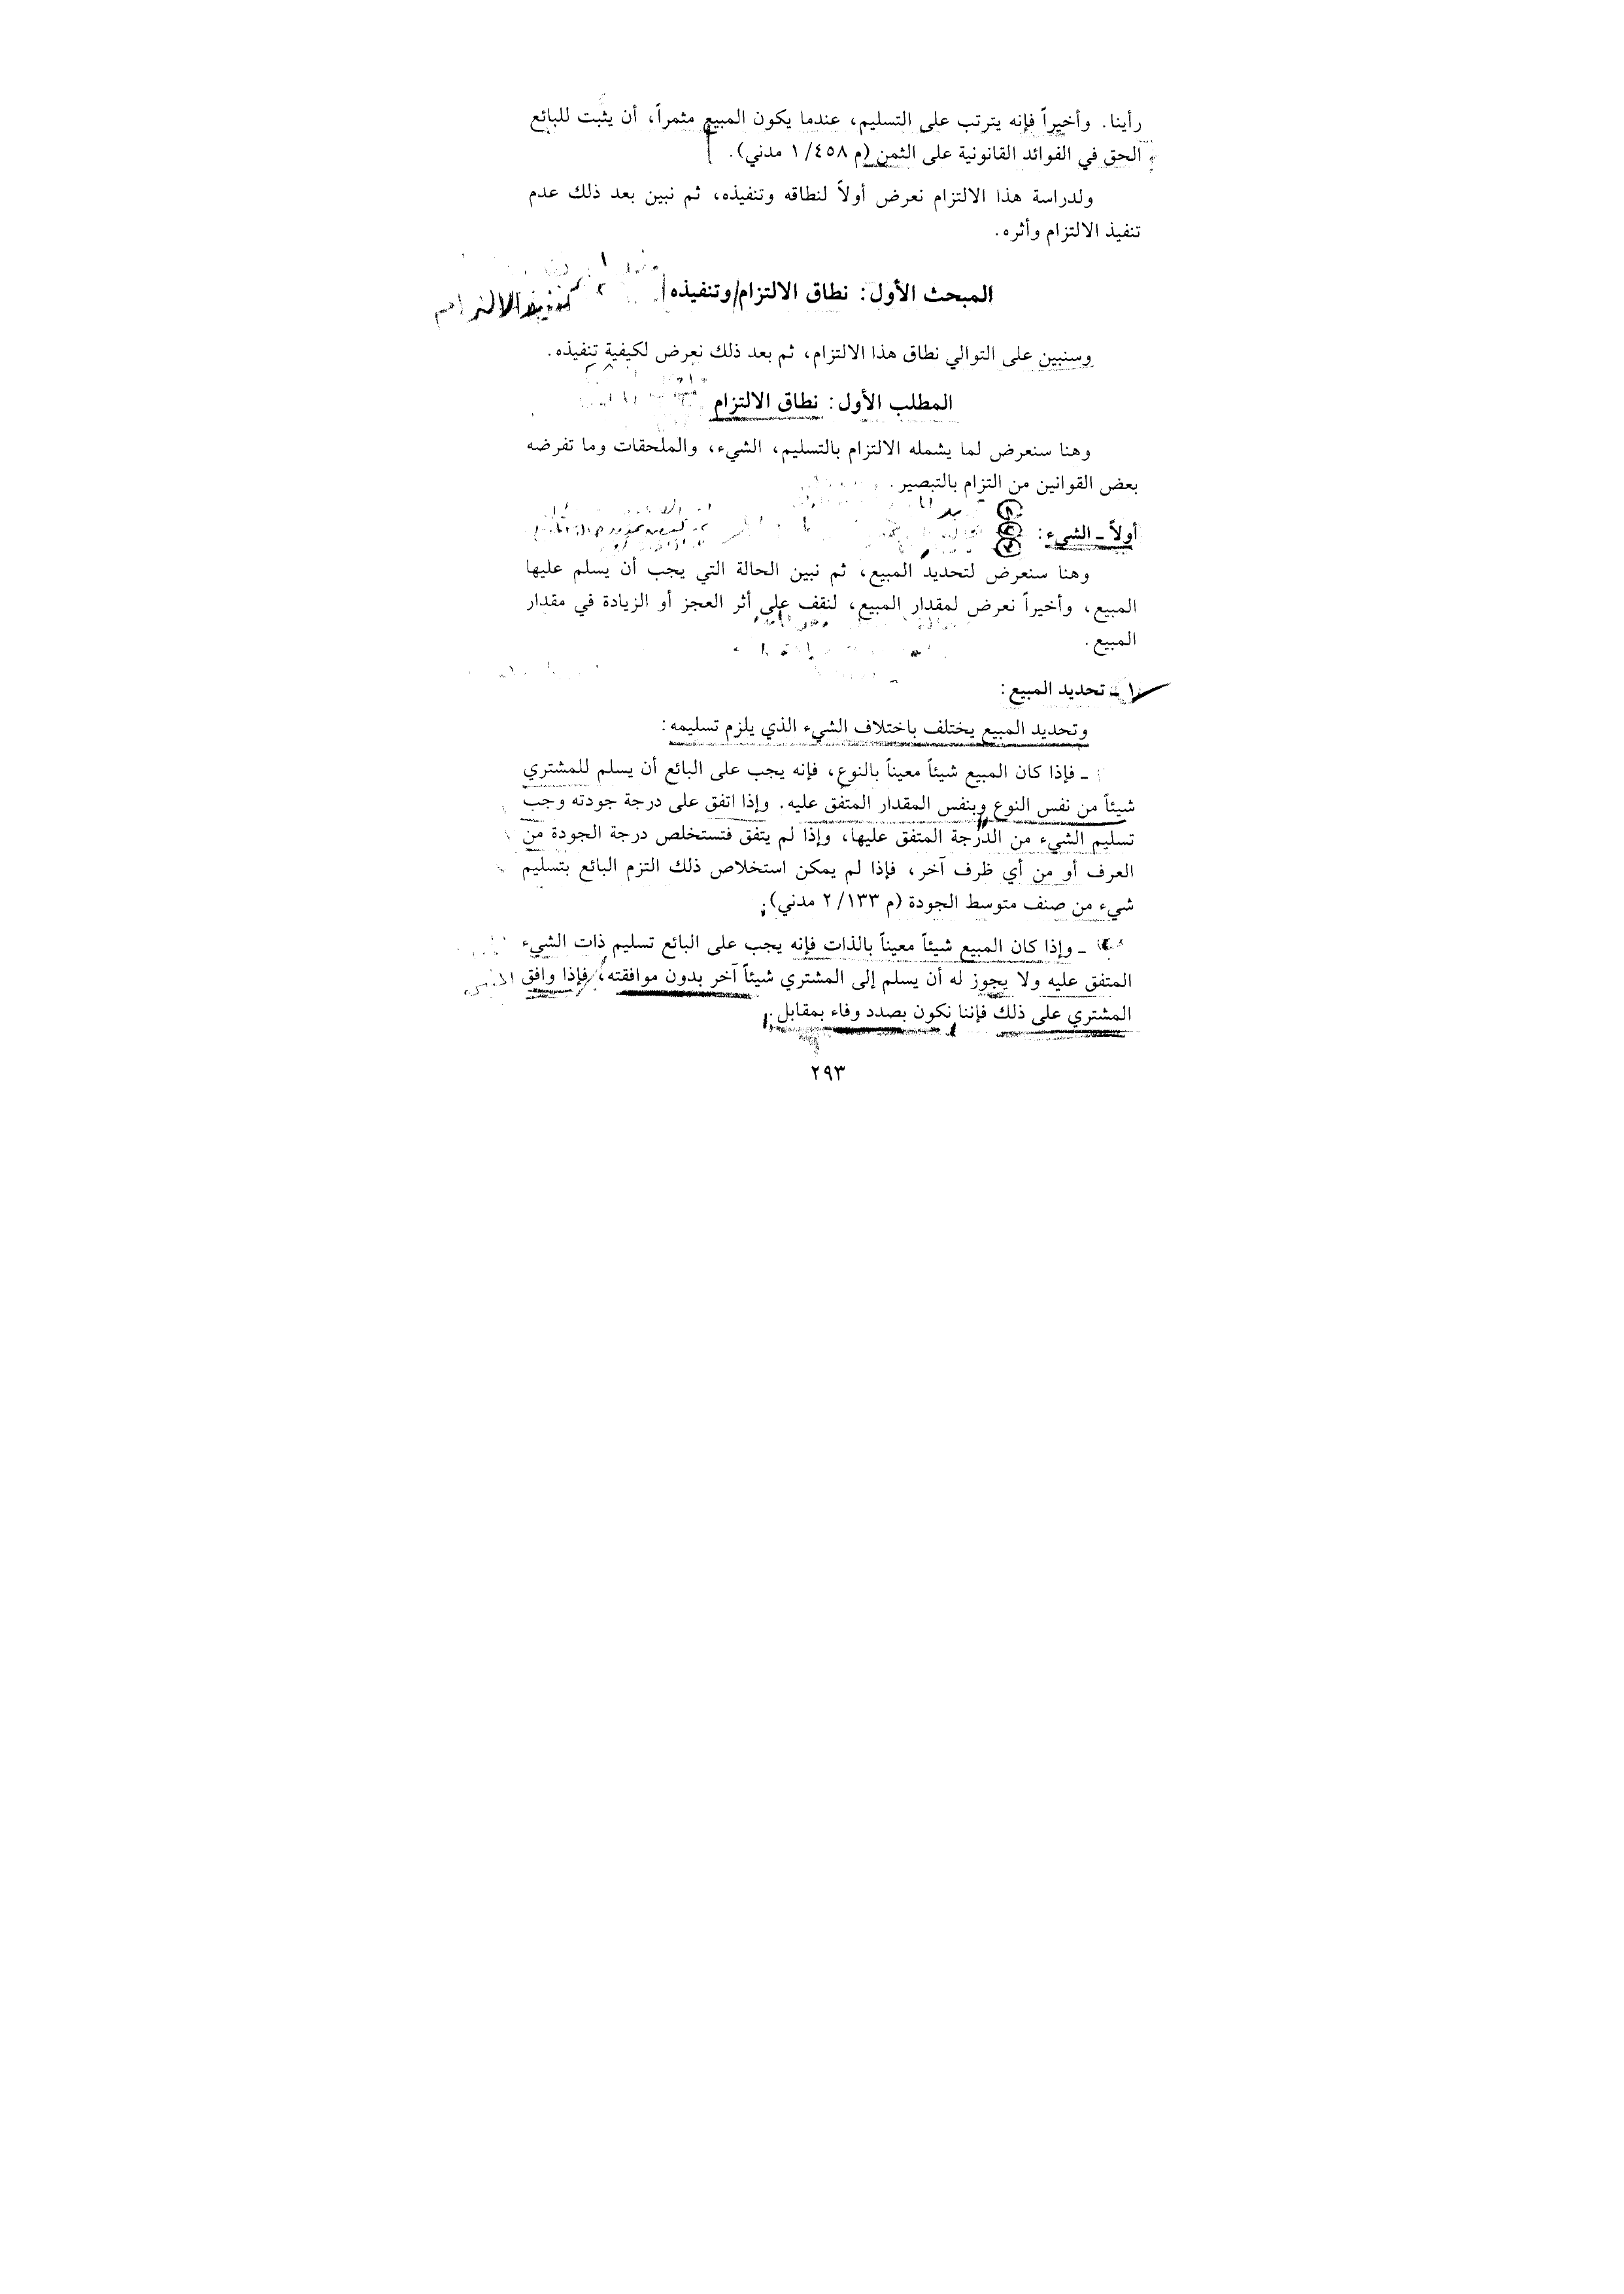 رأينا. وأخيراً فإنه يترتب على التسليم، عندما يكون المبيع مثمراً، أن يثبت للبائع
الحق في الفوائد القانونية على الثمن (م ٤٥٨/ ١ مدني).
ولدراسة هذا الالتزام نعرض أولاً لنطاقه وتنفيذه، ثم نبين بعد ذلك عدم
تنفيذ الالتزام وأثره.
المبحث الأول: نطاق الالتزام/وتنفيذه تنفيذ الالتزام
وسنبين على التوالي نطاق هذا الالتزام، ثم بعد ذلك نعرض لكيفية تنفيذه.
المطلب الأول: نطاق الالتزام
وهنا سنعرض لما يشمله الالتزام بالتسليم، الشيء، والملحقات وما تفرضه
بعض القوانين من التزام بالتبصير.
أولاً ـ الشيء:
وهنا سنعرض لتحديد المبيع، ثم نبين الحالة التي يجب أن يسلم عليها
المبيع، وأخيراً نعرض لمقدار المبيع، لنقف على أثر العجز أو الزيادة في مقدار
المبيع.
١ ـ تحديد المبيع:
وتحديد المبيع يختلف باختلاف الشيء الذي يلزم تسليمه:
ـ فإذا كان المبيع شيئاً معيناً بالنوع، فإنه يجب على البائع أن يسلم للمشتري
شيئاً من نفس النوع وبنفس المقدار المتفق عليه. وإذا اتفق على درجة جودته وجب
تسليم الشيء من الدرجة المتفق عليها، وإذا لم يتفق فتستخلص درجة الجودة من
العرف أو من أي ظرف آخر، فإذا لم يمكن استخلاص ذلك التزم البائع بتسليم
شيء من صنف متوسط الجودة (م ١٣٣/ ٢ مدني).
ـ وإذا كان المبيع شيئاً معيناً بالذات فإنه يجب على البائع تسليم ذات الشيء
المتفق عليه ولا يجوز له أن يسلم إلى المشتري شيئاً آخر بدون موافقته، فإذا وافق
المشتري على ذلك فإننا نكون بصدد وفاء بمقابل.
٢٩٣